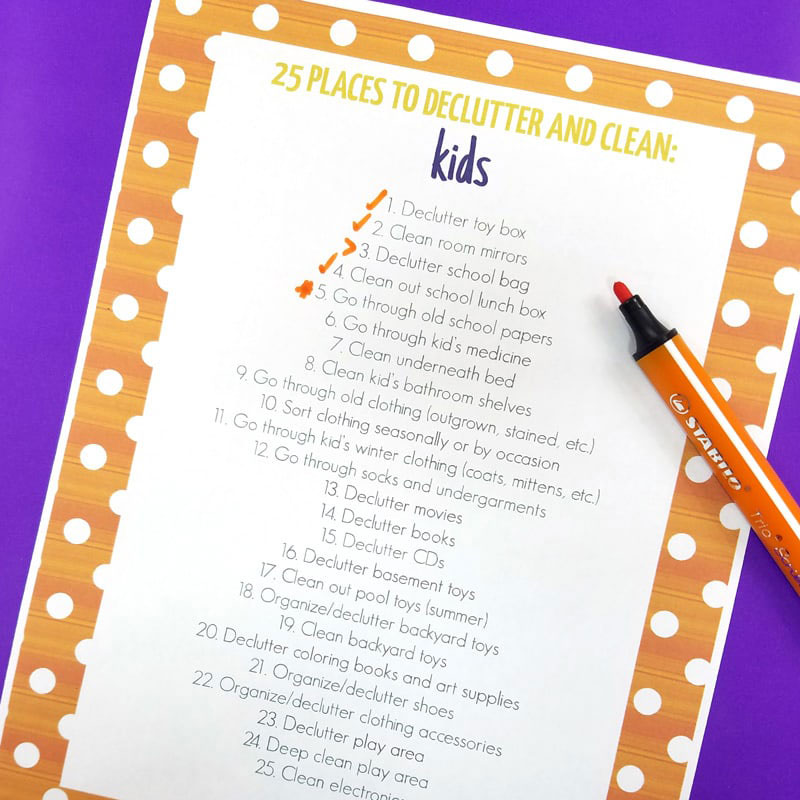 25 PLACES TO DECLUTTER AND CLEAN:
kids
1. Declutter toy box
2. Clean room mirrors
3. Declutter school bag
4. Clean out school lunch box
5. Go through old school papers
6. Go through kid's medicine
7. Clean underneath bed
8. Clean kid's bathroom shelves
9. Go through old clothing (outgrown, stained, etc.)
10. Sort clothing seasonally or by occasion
11. Go through kid's winter clothing (coats, mittens, etc.)
12. Go through socks and undergarments
13. Declutter movies
14. Declutter books
15. Declutter CDs
16. Declutter basement toys
17. Clean out pool toys (summer)
18. Organize/declutter backyard toys
19. Clean backyard toys
20. Declutter coloring books and art supplies
21. Organize/declutter shoes
22. Organize/declutter clothing accessories
23. Declutter play area
24. Deep clean play area
25. Clean
STABILO
Trio